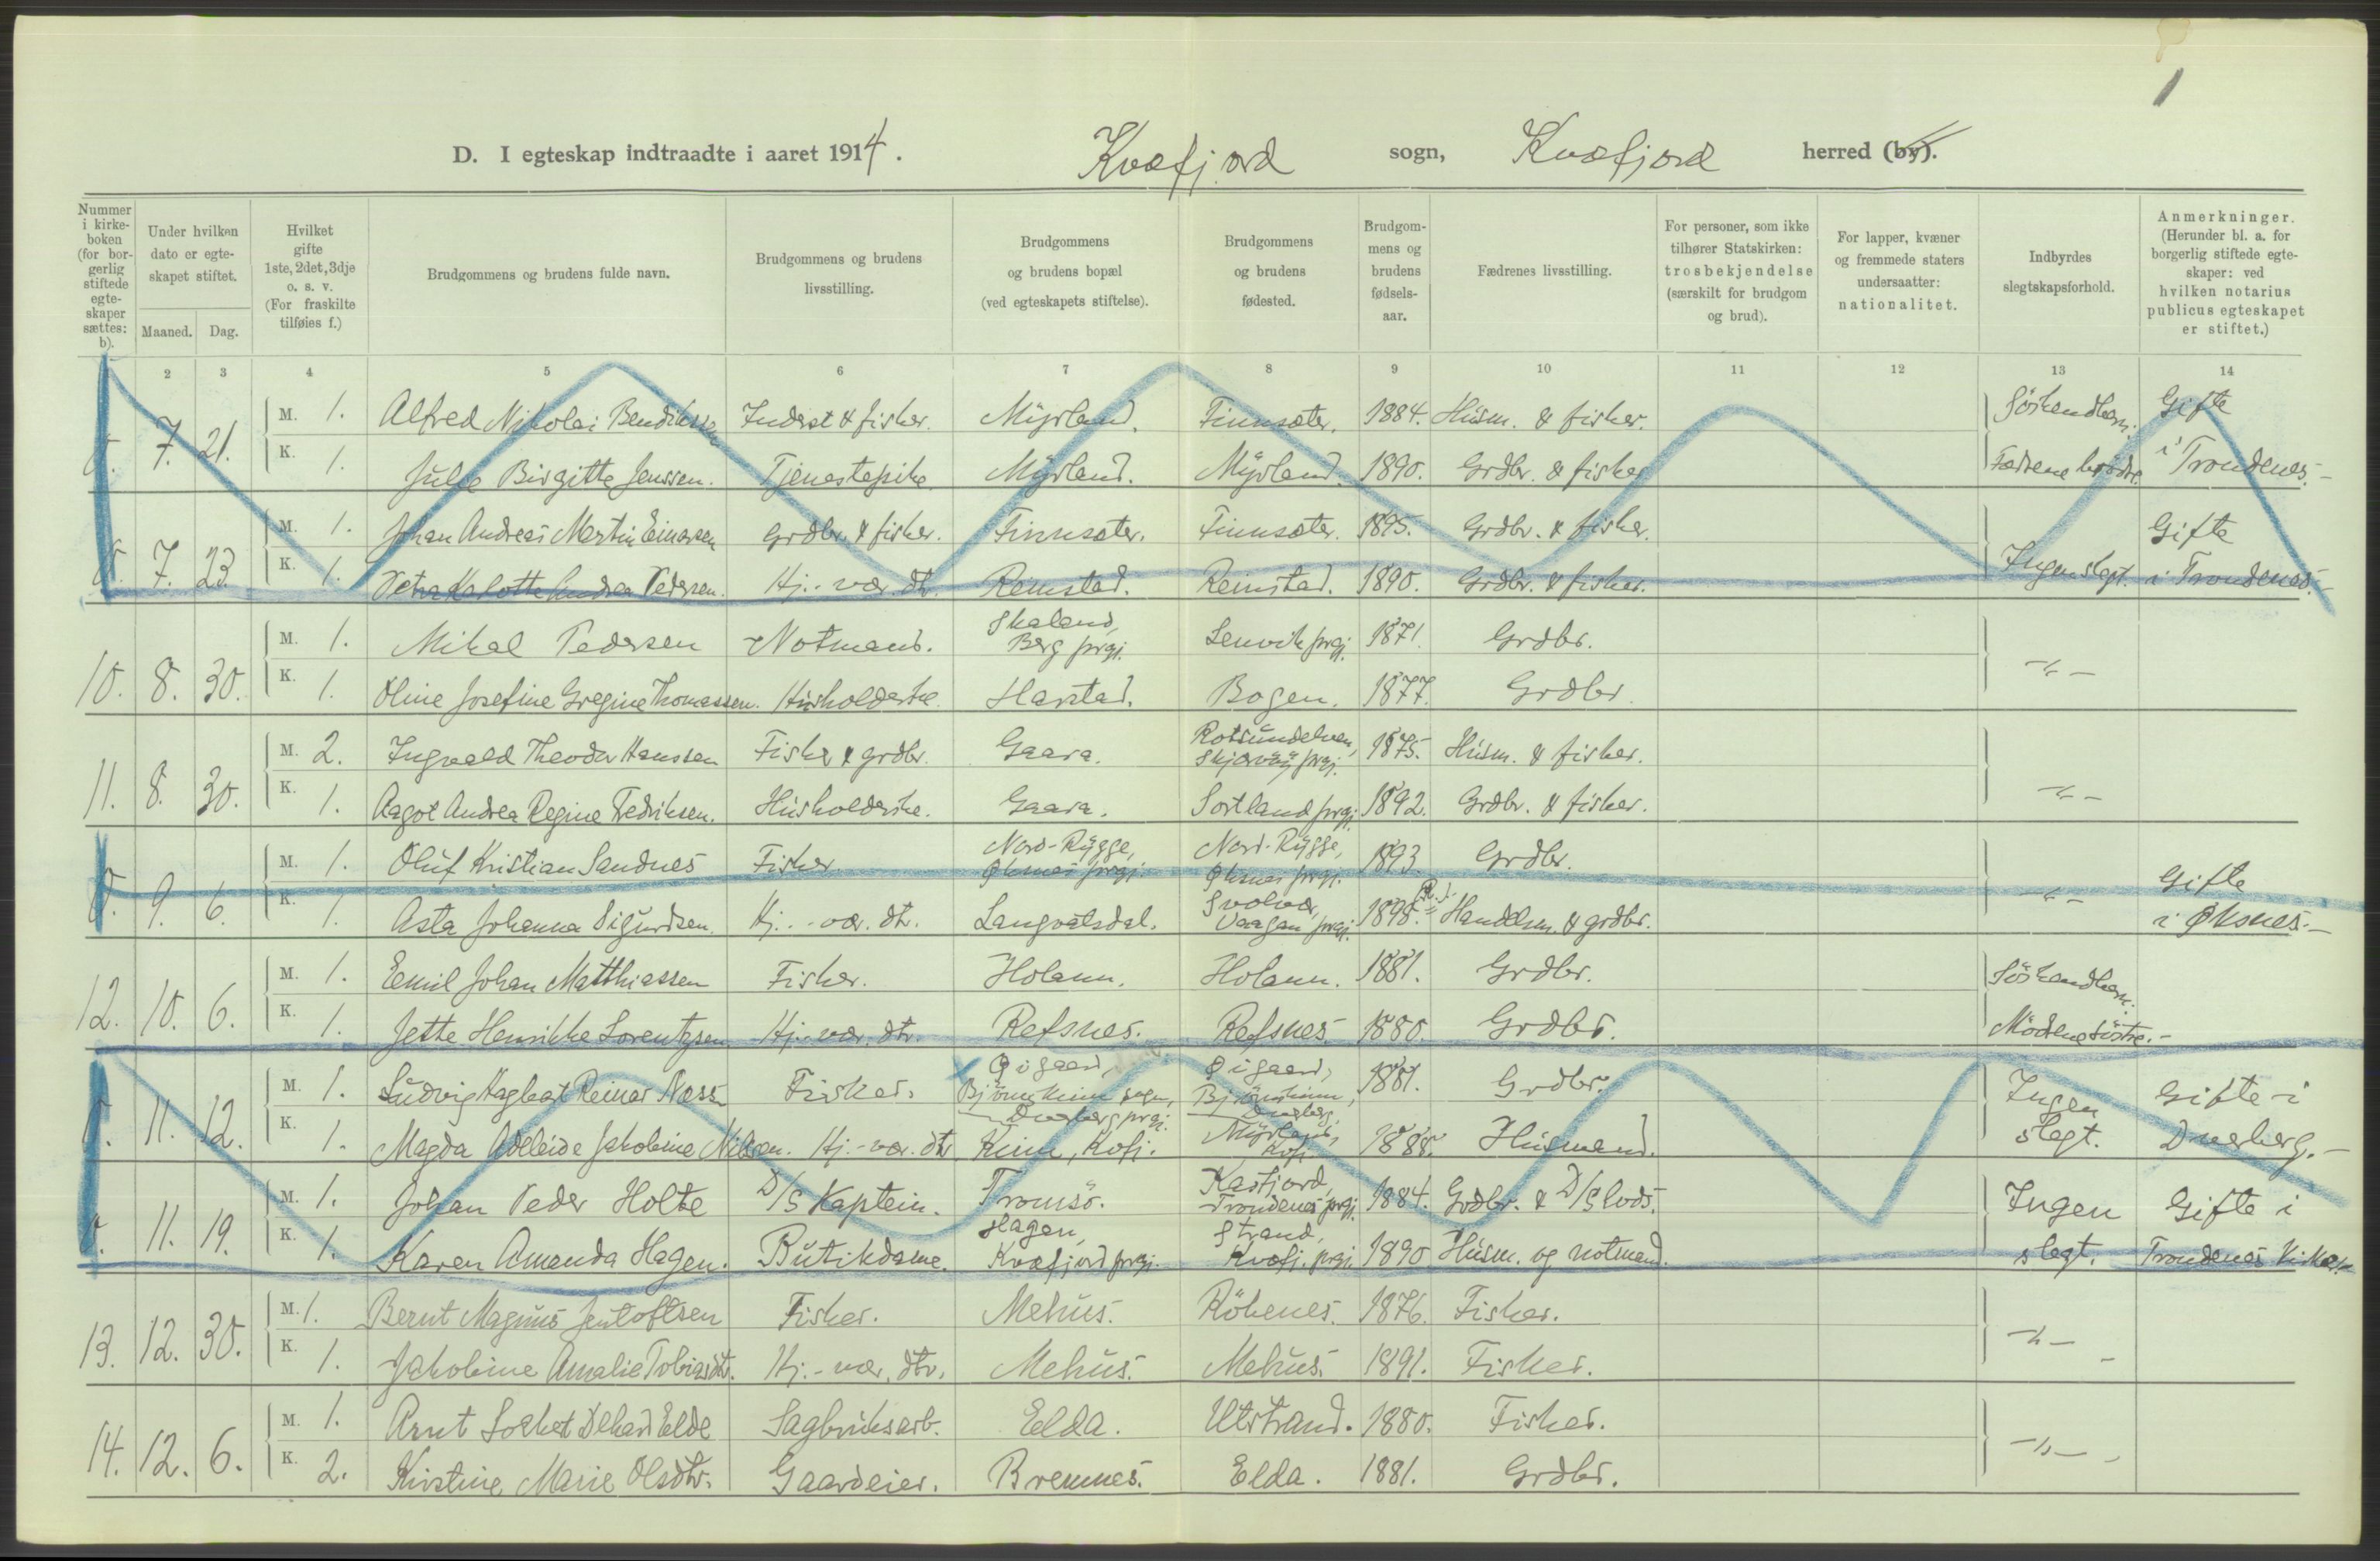 1
D. I egteskap indtraadte i aaret 1914. Kvæfjord sogn, Kvæfjord herred (by).
Nummer i kirke-boken (for bor-gerlig stiftede egte-skaper sættes: b).
Under hvilken dato er egte-skapet stiftet.
Maaned. Dag.
Hvilket gifte 1ste, 2det, 3dje o. s. v. (For fraskilte tilføies f.)
Brudgommens og brudens fulde navn.
Brudgommens og brudens livsstilling.
Brudgommens og brudens bopæl (ved egteskapets stiftelse).
Brudgommens og brudens fødested.
Brudgom-mens og brudens fødsels-aar.
Fædrenes livsstilling.
For personer, som ikke tilhører Statskirken: trosbekjendelse (særskilt for brudgom og brud).
For lapper, kvæner og fremmede staters undersaatter: nationalitet.
Indbyrdes slegtskapsforhold.
Anmerkninger. (Herunder bl. a. for borgerlig stiftede egte-skaper: ved hvilken notarius publicus egteskapet er stiftet.)
2 3 4 5 6 7 8 9 10 11 12 13 14
7. 21. M. 1. Alfred Nikolai Bendikssen Inderst & fisker. Myrland. Finnsæter. 1884. Husm. & fisker. Söskendbarn. Gifte
K. 1. Julie Birgitte Jenssen. Tjenestepike. Myrland. Myrland. 1890. Grdbr. & fisker Fædrene brödre. i Trondenes.-
7. 23. M. 1. Johan Andreas Martin Einarsen Grdbr. & fisker. Finnsæter. Finnsæter. 1895. Grdbr. & fisker. Gifte
K. 1. Petra Kalotte Andrea Pedersen. Hj.-vær. dtr. Reinstad. Reinstad. 1890. Grdbr. & fisker. Ingen slegt. i Trondenes.-
10. 8. 30. M. 1. Mikal Pedersen Notmand. Skaland, Berg prgj. Lenvik prgj. 1871. Grdbr. -"-
K. 1. Oline Josefine Gregine Thomassen. Husholderske. Harstad. Bogen. 1877. Grdbr.
11. 8. 30. M. 2. Ingvald Theodor Hanssen Fisker & grdbr. Gaara. Rotsundelven, Skjærvöy prgj. 1875. Husm. & fisker.
K. 1. Aagot Andrea Regine Fedriksen. Husholderske. Gaara. Sortland prgj. 1892. Grdbr. & fisker. -"-
9. 6. M. 1. Oluf Kristian Sandnes Fisker Nord-Rygge, Øksnes prgj. Nord-Rygge, Øksnes prgj. 1893. Grdbr. -"- Gifte
K. 1. Asta Johanna Sigurdsen. Hj.-vær. dtr. Langvatsdal. Svolvær, Vaagan prgj. 1895. Handelsm. & grdbr. i Øksnes.-
12. 10. 6. M. 1. Eemil Johan Matthiassen Fisker. Holann. Holann. 1881. Grdbr. Söskendbarn.
K. 1. Jette Henrikke Lorentzsen Hj.-vær. dtr. Refsnes. Refsnes 1880. Grdbr. Mödrene söstre.-
11. 12. M. 1. Ludvig Hagbart Reinar Næss Fisker. Ø i gaard, Björnskinn sogn, Dverberg prgj. Ø i gaard, Björnskinn, Dverberg 1881. Grdbr. Ingen Gifte i
K. 1. Magda Adeleide Jakobine Nilsen. Hj.-vær. dtr. Kinn, Kvfj. Myrland, Kvfj. 1888. Husmand. slegt. Dverberg.-
11. 19. M. 1. Johan Peder Holte D/S Kaptein. Tromsö. Kasfjord, Trondenes prgj. 1884. Grdbr. & D/S lods. Ingen Gifte i
K. 1. Karen Amanda Hagen. Butikdame. Hagen, Kvæfjord prgj. Strand, Kvæfj. prgj. 1890 Husm. og notmand. slegt. Trondenes Kirke.-
13. 12. 30. M. 1. Bernt Magnus Jentoftsen Fisker. Mehus. Rökenes. 1876. Fisker. -"-
K. 1. Jakobine Amalie Tobiasdtr. Hj.-vær. dtr. Mehus. Mehus. 1891. Fisker.
14. 12. 6. M. 1. Arnt Delhard Elde Sagbruksarb. Elda. Utstrand. 1880. Fisker. -"-
K. 2. Kirstine Marie Olsdtr. Gaardeier. Bremnes. Elda. 1881. Grdbr.